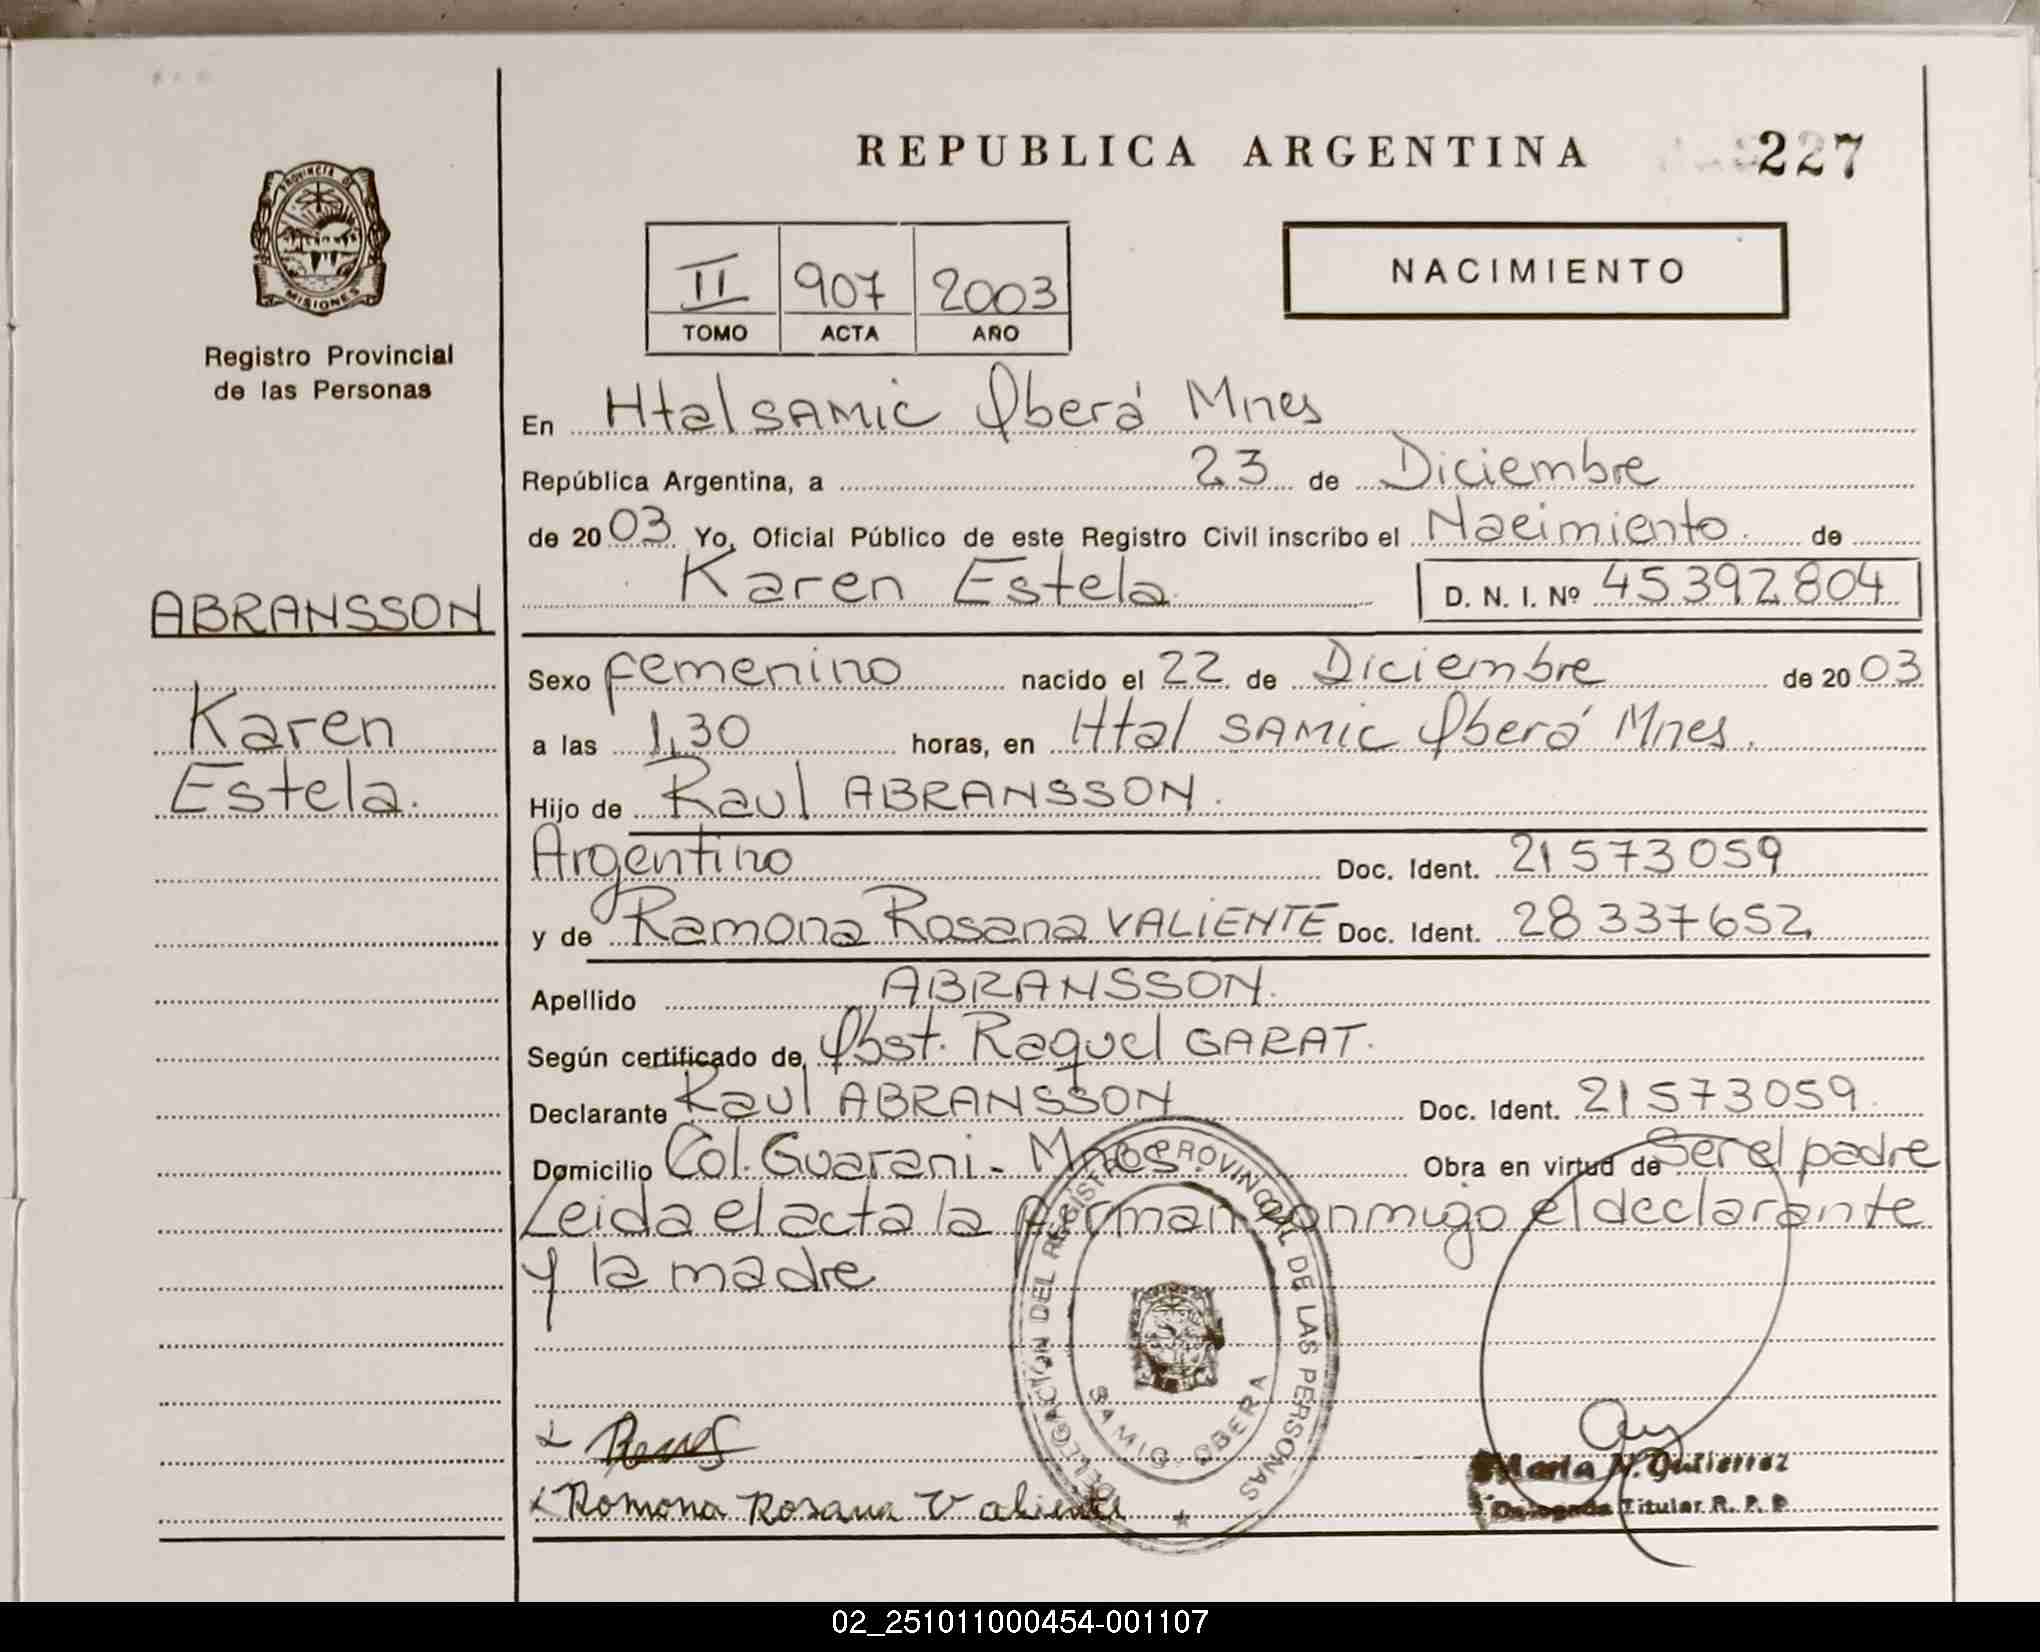 REPUBLICA ARGENTINA
227
PROVINCIA DE
MISIONES
Registro Provincial
de las Personas
II 907 2003
TOMO ACTA AÑO
NACIMIENTO
En Htal SAMIC Oberá Mnes
República Argentina, a 23 de Diciembre
de 2003 Yo, Oficial Público de este Registro Civil inscribo el Nacimiento de
Karen Estela D. N. I. Nº 45392804
ABRANSSON
Karen
Estela.
Sexo femenino nacido el 22 de Diciembre de 2003
a las 1,30 horas, en Htal SAMIC Oberá Mnes.
Hijo de Raul ABRANSSON.
Argentino Doc. Ident. 21573059
y de Ramona Rosana VALIENTE Doc. Ident. 28337652
Apellido ABRANSSON.
Según certificado de Obst. Raquel GARAT.
Declarante Raul ABRANSSON Doc. Ident. 21573059
Domicilio Col. Guarani - Mnes. Obra en virtud de Ser el padre
Leida el acta la firman conmigo el declarante
y la madre
DELEGACION DEL REGISTRO PROVINCIAL DE LAS PERSONAS
SAMIC - OBERA
Ramona Rosana Valiente
Maria N. Gutierrez
Delegada Titular R. P. P.
02_251011000454-001107